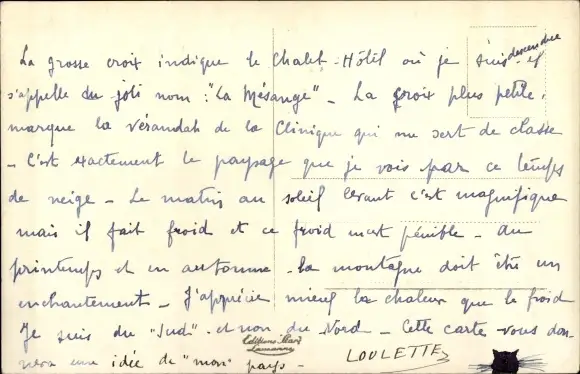 La grosse croix indique le Chalet-Hôtel où je suis descendue il
s'appelle du joli nom : "La Mésange" _ La croix plus petite
marque la vérandah de la Clinique qui me sert de classe
_ C'est exactement le paysage que je vois par ce temps
de neige _ Le matin au soleil levant c'est magnifique
mais il fait froid et ce froid m'est pénible _ Au
printemps et en automne _ la montagne doit être un
enchantement _ J'apprécie mieux la chaleur que le froid
Je suis du "Sud" _ et non du Nord _ Cette carte vous don-
nera une idée de "mon" pays _
LOULETTE
Editions
Lausanne